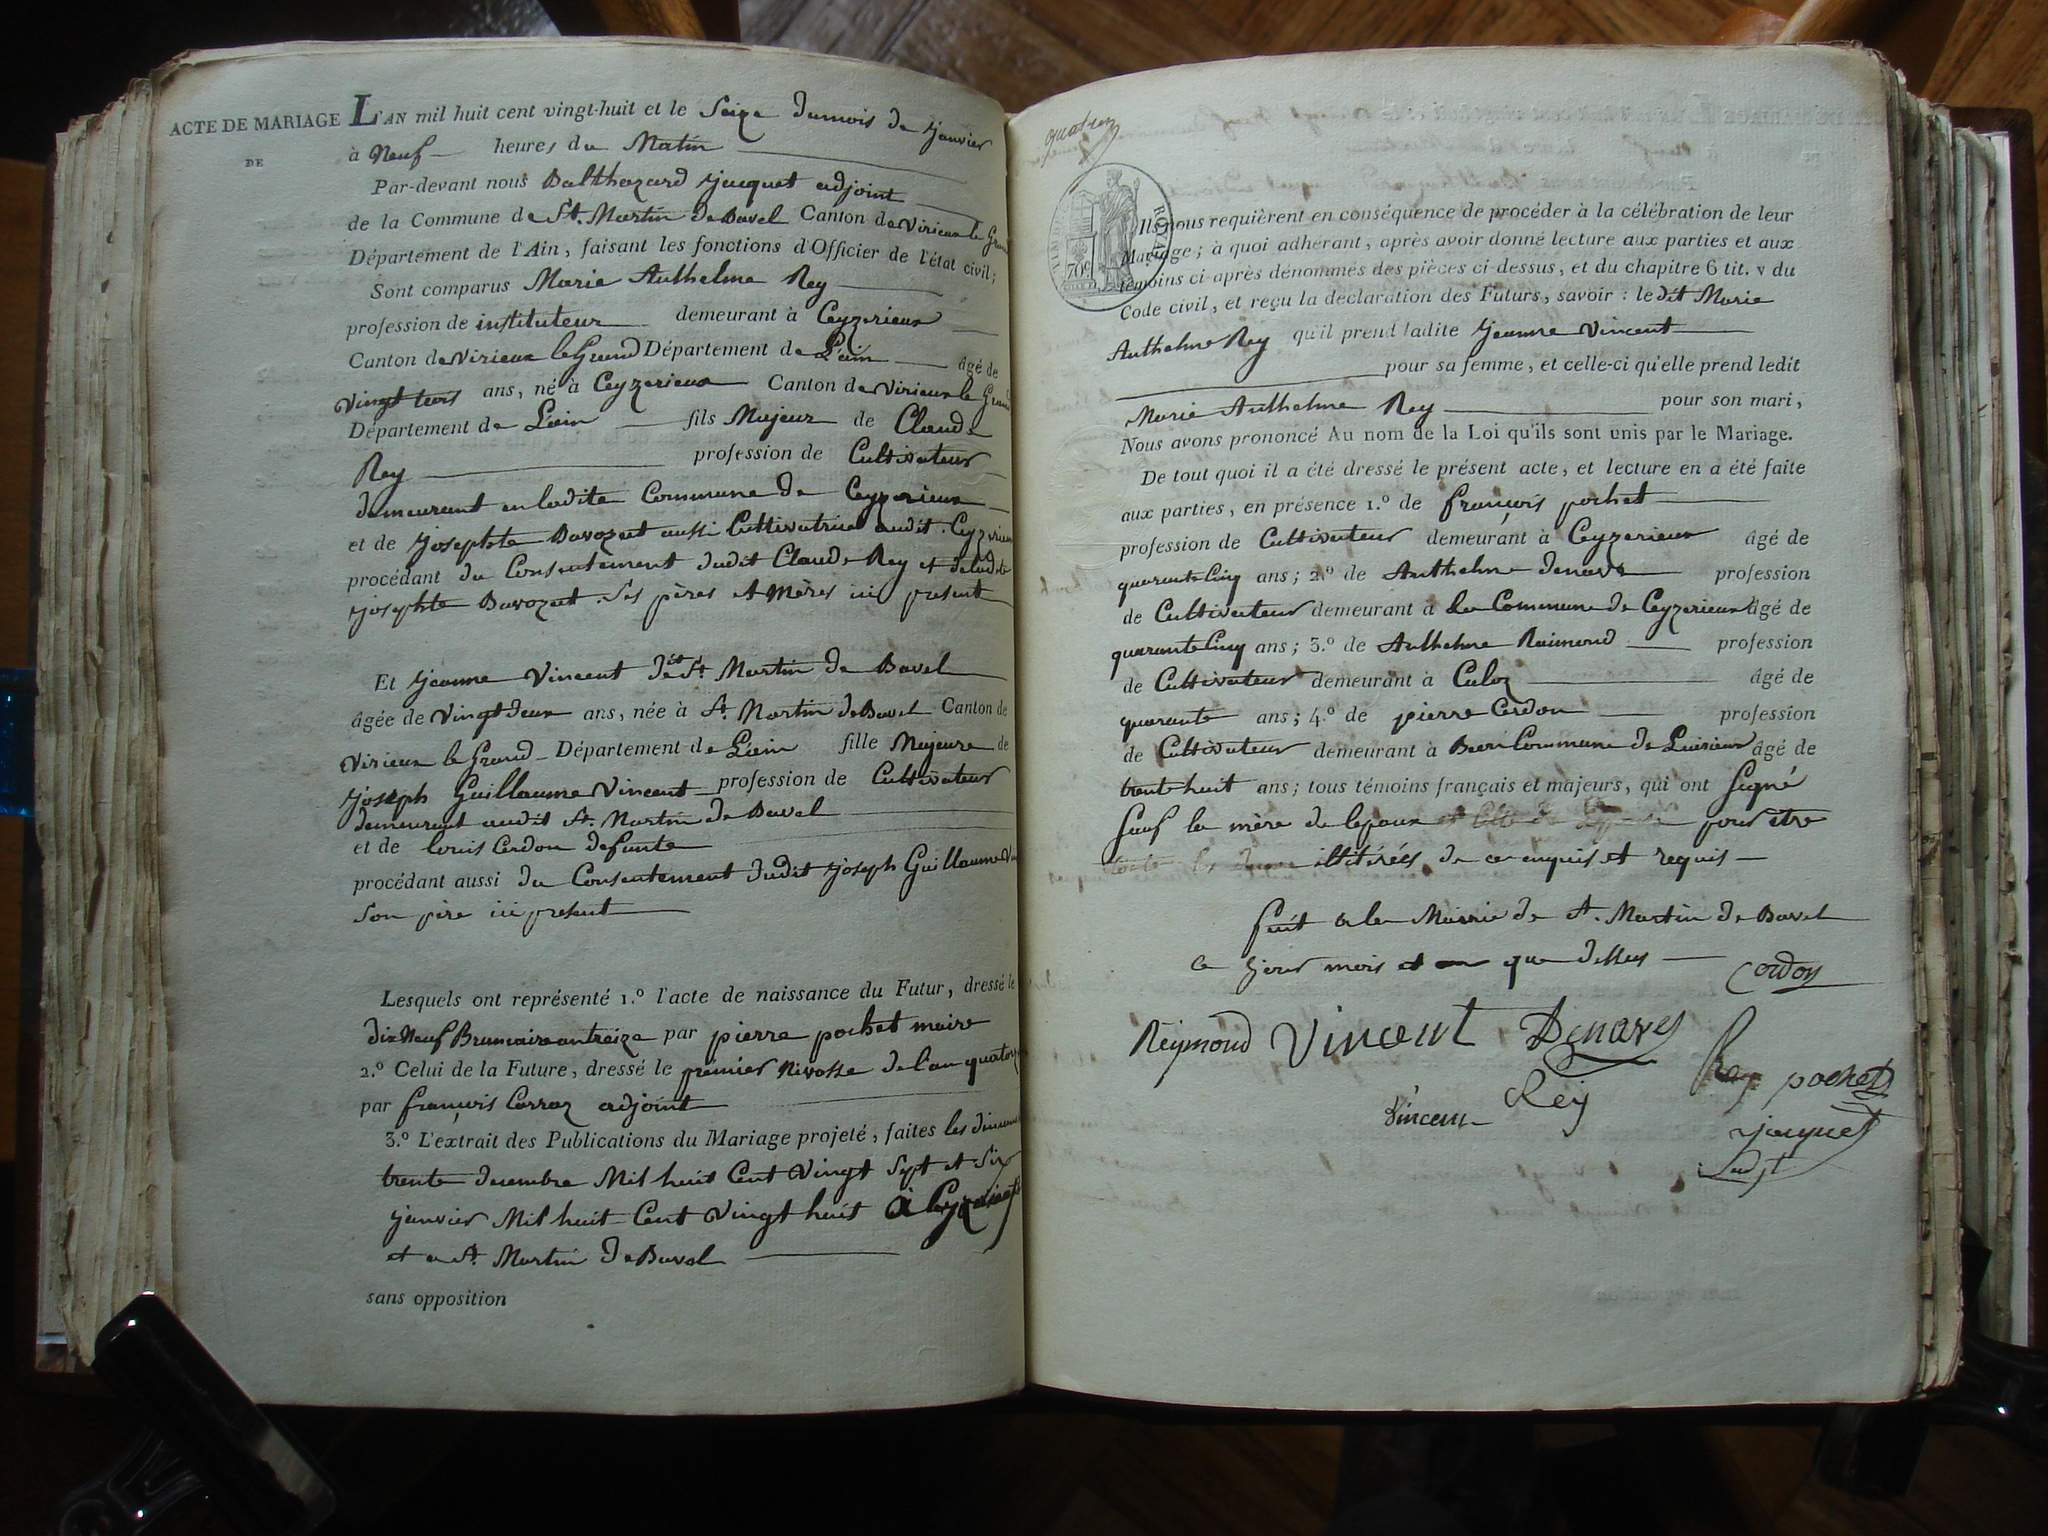 ACTE DE MARIAGE
DE
L'AN mil huit cent vingt-huit et le Seize du mois de janvier
à Neuf heures du Matin
Par-devant nous Balthazard jacquet adjoint
de la Commune de St. Martin de Bavel Canton de Virieux le Grand
Département de l'Ain, faisant les fonctions d'Officier de l'état civil;
Sont comparus Marie Anthelme Rey
profession de instituteur demeurant à Ceyzerieux
Canton de Virieux le Grand Département de L'ain âgé de
vingt trois ans, né à Ceyzerieux Canton de Virieux le Grand
Département de L'ain fils Majeur de Claude
Rey profession de Cultivateur
demeurant en ladite Commune de Ceyzerieux
et de josephte Bavozat aussi Cultivatrice audit Ceyzerieux
procédant du Consentement dudit Claude Rey et de ladite
josephte Bavozat. Ses pères et Mères ici présent
Et jeanne Vincent de St. Martin de Bavel
âgée de Vingt deux ans, née à St. Martin de Bavel Canton de
Virieux le Grand Département de L'ain fille Majeure de
joseph Guillaume Vincent profession de Cultivateur
demeurant audit St. Martin de Bavel
et de louise Cerdon defunte
procédant aussi du Consentement dudit joseph Guillaume
Son père ici présent
Lesquels ont représenté 1.º l'acte de naissance du Futur, dressé le
dix Neuf Brumaire an treize par pierre pochet maire
2.º Celui de la Future, dressé le premier Nivosse de l'an quatorze
par françois Carraz adjoint
3.º L'extrait des Publications du Mariage projeté, faites les
trente decembre Mil huit Cent Vingt Sept et Six
janvier Mil huit Cent Vingt huit à Ceyzerieux
et a St. Martin de Bavel
sans opposition
TIMBRE ROYAL
70c
Ils nous requièrent en conséquence de procéder à la célébration de leur
Mariage; à quoi adhérant, après avoir donné lecture aux parties et aux
témoins ci-après dénommés des pièces ci-dessus, et du chapitre 6 tit. v du
Code civil, et reçu la déclaration des Futurs, savoir : le dit Marie
Anthelme Rey qu'il prend ladite jeanne Vincent
pour sa femme, et celle-ci qu'elle prend ledit
Marie Anthelme Rey pour son mari,
Nous avons prononcé Au nom de la Loi qu'ils sont unis par le Mariage.
De tout quoi il a été dressé le présent acte, et lecture en a été faite
aux parties, en présence 1.º de françois pochet
profession de Cultivateur demeurant à Ceyzerieux âgé de
quarante Cinq ans; 2.º de Anthelme denave profession
de Cultivateur demeurant à la Commune de Ceyzerieux âgé de
quarante Cinq ans; 3.º de Anthelme Raimond profession
de Cultivateur demeurant à Culoz âgé de
quarante ans; 4.º de pierre Cerdon profession
de Cultivateur demeurant à Commune de âgé de
trente huit ans; tous témoins français et majeurs, qui ont Signé
Sauf la mère de lepoux pour être
illitérées de ce enquis et requis
fait a la Mairie de St. Martin de Bavel
ce jour mois et an que dessus
Cerdon
Reymond Vincent Denave
Rey pochet
Vincent Rey
jacquet
adjt